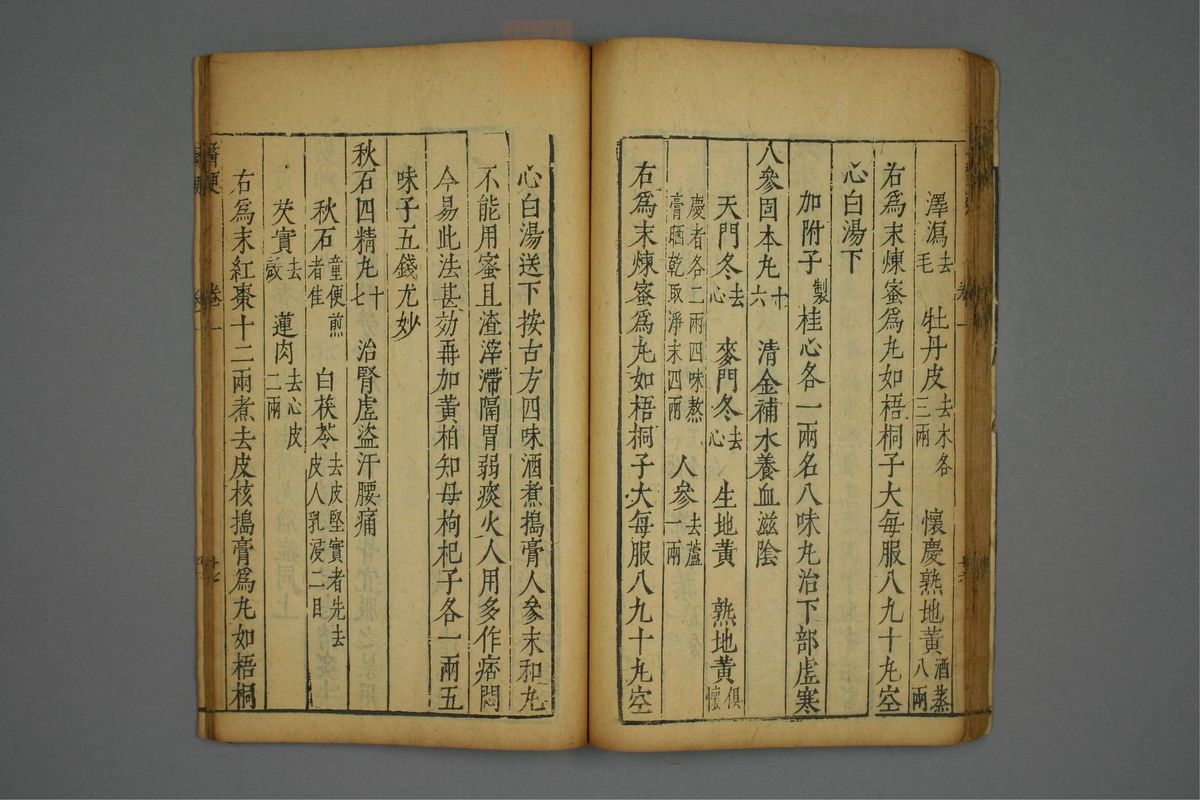 澤瀉去毛 牡丹皮去木各三兩 懷慶熟地黃酒蒸八兩
右爲末煉蜜爲丸如梧桐子大每服八九十丸空
心白湯下
加附子製桂心各一兩名八味丸治下部虛寒
人參固本丸十六 清金補水養血滋陰
天門冬去心 麥門冬去心 生地黃 熟地黃俱懷
慶者各二兩四味熬膏晒乾取淨末四兩 人參去蘆一兩
右爲末煉蜜爲丸如梧桐子大每服八九十丸空
心白湯送下按古方四味酒煮搗膏人參末和丸
不能用蜜且渣滓滯隔胃弱痰火人用多作痞悶
今易此法甚効再加黃柏知母枸杞子各一兩五
味子五錢尤妙
秋石四精丸十七 治腎虛盜汗腰痛
秋石童便煎者佳 白茯苓去皮堅實者先去皮人乳浸二日
芡實去殼 蓮肉去心皮二兩
右爲末紅棗十二兩煮去皮核搗膏爲丸如梧桐
攝便 卷一